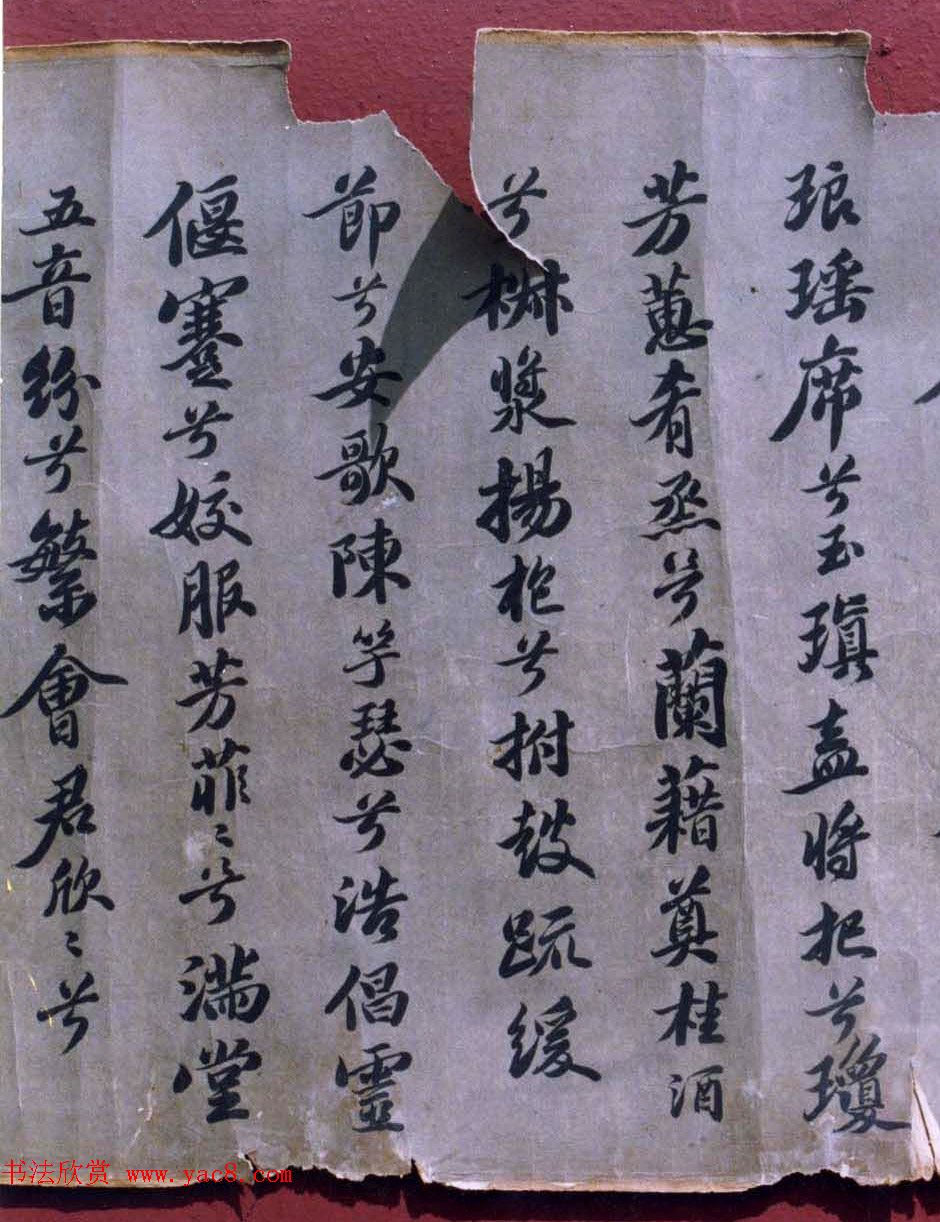 琅瑤席兮玉瑱盍將把兮瓊
芳蕙肴烝兮蘭藉奠桂酒
兮椒漿揚枹兮拊鼓疏緩
節兮安歌陳竽瑟兮浩倡靈
偃蹇兮姣服芳菲〻兮滿堂
五音紛兮繁會君欣〻兮
书法欣赏 www.yac8.com